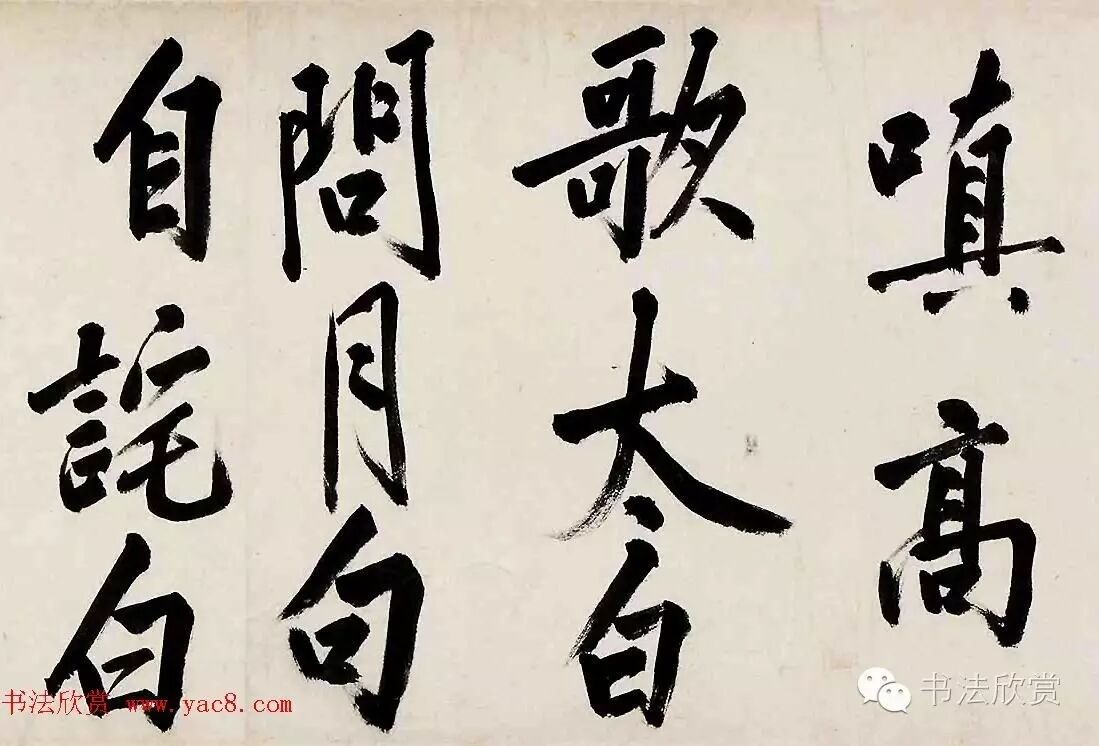 嗔高
歌太白
問月句
自詫白
书法欣赏 www.yac8.com
书法欣赏